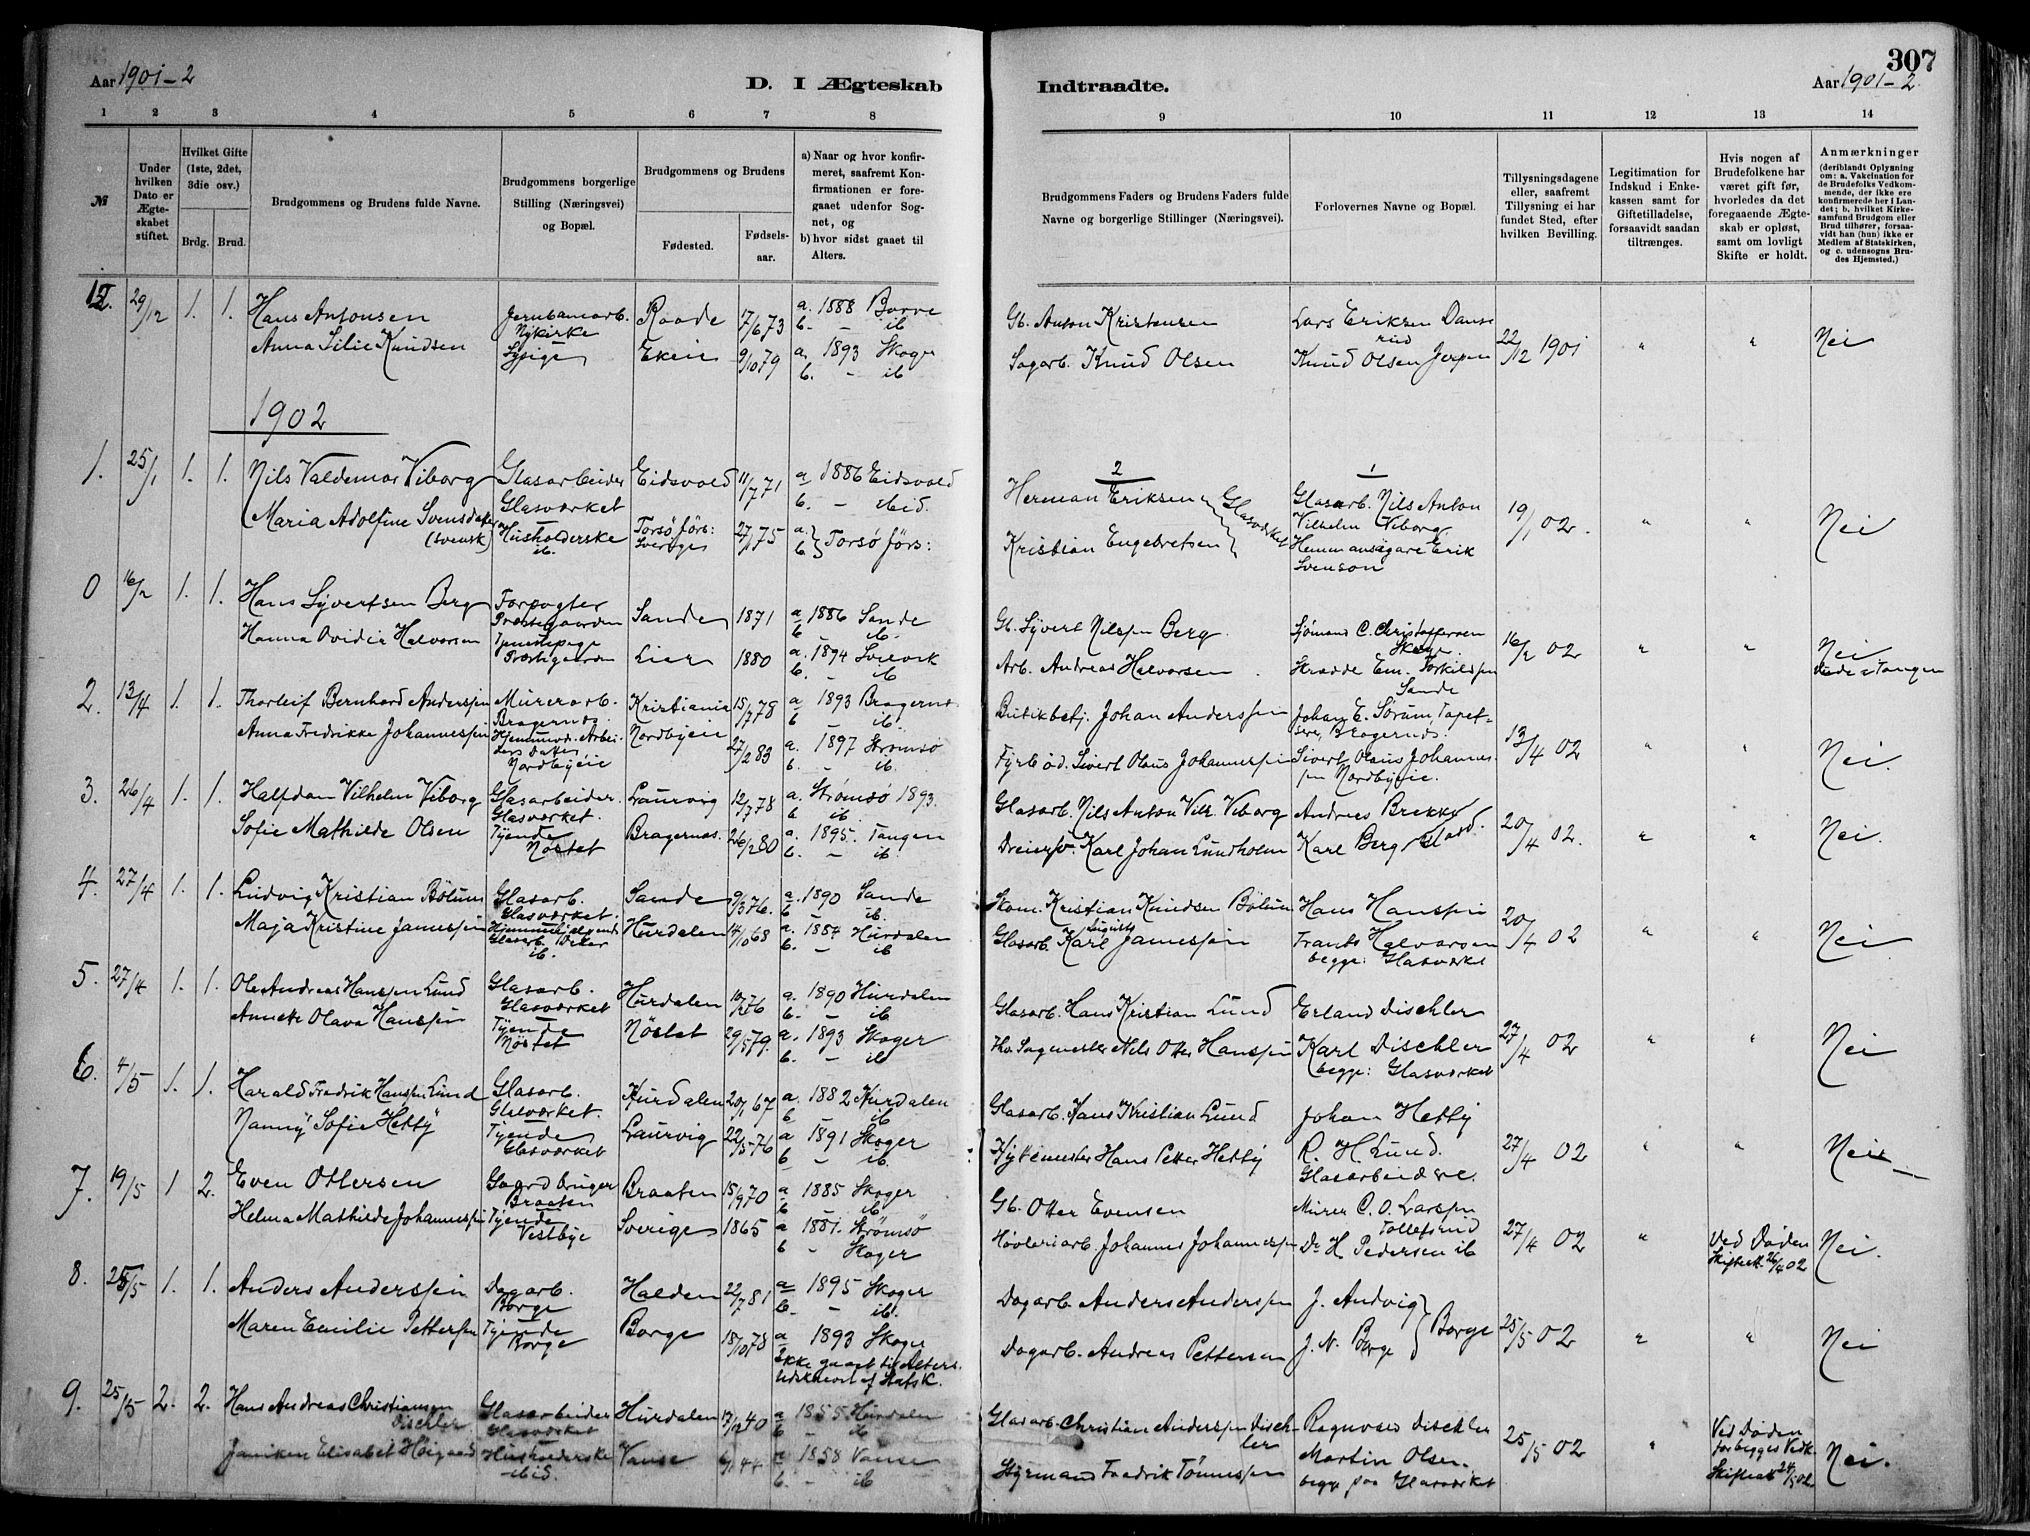 307
Aar 1901-2
D. I Ægteskab Indtraadte.
Aar 1901-2
1 2 3 4 5 6 7 8 9 10 11 12 13 14
№
Under hvilken Dato er Ægteskabet stiftet.
Hvilket Gifte (1ste, 2det, 3die osv.)
Brdg. Brud.
Brudgommens og Brudens fulde Navne.
Brudgommens borgerlige Stilling (Næringsvei) og Bopæl.
Brudgommens og Brudens
Fødested.
Fødselsaar.
a) Naar og hvor konfirmeret, saafremt Konfirmationen er foregaaet udenfor Sognet, og
b) hvor sidst gaaet til Alters.
Brudgommens Faders og Brudens Faders fulde Navne og borgerlige Stillinger (Næringsvei).
Forlovernes Navne og Bopæl.
Tillysningsdagene eller, saafremt Tillysning ei har fundet Sted, efter hvilken Bevilling.
Legitimation for Indskud i Enkekassen samt for Giftetilladelse, forsaavidt saadan tiltrænges.
Hvis nogen af Brudefolkene har været gift før, hvorledes da det foregaaende Ægteskab er opløst, samt om lovligt Skifte er holdt.
Anmærkninger
(deriblandt Oplysning om: a. Vakcination for de Brudefolks Vedkommende, der ikke ere konfirmerede her i Landet; b. hvilket Kirkesamfund Brudgom eller Brud tilhører, forsaavidt han (hun) ikke er Medlem af Statskirken, og c. udensogns Brudes Hjemsted.)
29/12 1. 1. Hans Antonsen Jernbanearb. Nykirke Raade 17/6 73 a. 1888 Borre b. - ib Gb. Anton Kristensen Lars Eriksen Danserud 22/12 1901 " " Nei
Anna Silie Knudsen Sysige Ekeie 9/10 79 a. 1893 Skoger b. - ib Sagarb. Knud Olsen Knud Olsen Jerpen
1902
1. 25/1 1. 1. Nils Valdemar Viborg Glasarbeider Glasværket Eidsvold 11/7 71 a 1886 Eidsvold b. - ibid. 2 Herman Eriksen Glasværket 1 Glasarb. Nils Anton Vilhelm Viborg 19/1 02. " " Nei
Maria Adolfine Svensdatter (svensk) Husholderske ib. Torsø förs: Sverige 27/1 75 a. b. Torsø förs: Kristian Engebretsen Hemmansägare Erik Svenson
0 16/2 1. 1. Hans Syvertsen Berg Forpagter Præstegaarden Sande 1871 a 1886 Sande b - ib. Gb. Syvert Nilssen Berg Sjømand C. Christoffersen 16/2 02 " " Nei
Hanna Ovidia Halvorsen Tjenestepige Præstegaarden Lier 1880 a. 1894 Svelvik b. - ib Arb. Andreas Halvorsen Em. Torkildsen Sande
2. 13/4 1. 1. Thorleif Bernhard Anderssen Murerarb. Bragernes. Kristiania 15/7 78 a 1893 Bragernes b - ib. Butikbetj. Johan Anderssen Johan E. Sørum, Tapetserer, Bragernes. 13/4 02 " " Nei.
Anna Fredrikke Johannessen Hjemmev. Arbeiders Datter Nordbyeie Nordbyeie 27/2 83 a. 1897 Strømsø b. - ib. Fyrbød. Sivert Olaus Johannessen Sivert Olaus Johannessen Nordbyeie.
3. 26/4 1. 1. Halfdan Vilhelm Viborg Glasarbeider. Glasværket. Laurvig 12/7 78 a. Strømsø 1893. b ib. Glasarb. Nils Anton Vilh. Viborg Andreas Brekke 20/4 02. " " Nei.
Sofie Mathilde Olsen Tjende Nøstet Bragernæs. 26/2 80 a. 1895. Tangen b. - ib. Karl Johan Lundholm Karl Berg
4. 27/4 1. 1. Ludvig Kristian Bølum Glasarb. Glasværket. Sande 9/3 76. a. 1890 Sande b - ib. Skom. Kristian Knudsen Bølum Hans Hanssen 20/4 02 " " Nei
Maja Kristine Janessen ib. Hurdalen 14/10 68 a. 1884 Hurdalen b. - ib Glasarb. Karl August Janessen Frants Halvorsen begge: Glasværket
5. 27/4 1. 1. Ole Andreas Hanssen Lund Glasarb. Glasværket Hurdalen 10/1 76 a. 1890 Hurdalen b. - ib. Glasarb. Hans Kristian Lund Erland Dischler 27/4 02 " " Nei
Annette Olava Hanssen Tjende Nøstet Nøstet 29/5 79. a. 1893 Skoger b. - ib Sagmester Nils Otter Hanssen Karl Dischler begge: Glasværket
6. 4/5 1. 1. Harald Fredrik Hanssen Lund Glasarb. Glasværket. Hurdalen 20/1 67 a. 1882 Hurdalen b - ib. Glasarb. Hans Kristian Lund Johan Hetty 27/4 02 " " Nei
Nanny Sofie Hetty Tjende Glasværket Laurvig 22/5 76 a 1891 Skoger b - ib. Hyttemester Hans Petter Hetty R. H. Lund. Glasarbeidere.
7. 19/5 1 2. Even Ottersen Gaardbruger Braaten Braaten 15/9 70 a 1885 Skoger b ib. Gb. Otter Evensen Murer C. O. Larssen Tollefsrud 27/4 02 " Ved Døden Skifteatt. 26/4 02 Nei.
Helma Mathilde Johannessen Tjende Vestbye Sverige 1865 a 1881. Strømsø b - Skoger Høvleriarb. Johannes Johannessen H. Pedersen ib
8. 25/5 1. 1. Anders Anderssen Dagarb. Borge Halden 22/7 81 a 1895 Skoger b. - ib. Dagarb. Anders Anderssen J. Andvig Borge 25/5 02 " " Nei
Maren Emilie Pettersen Tjende Borge Borge 18/10 78 a 1893 Skoger b Ikke gaaet til Alters. Udskrevet af Statsk. Dagarb. Andreas Pettersen J. N. Borge
9. 25/5 2. 2. Hans Andreas Christiansen Dischler Glasarbeider Glasværket Hurdalen 17/12 40 a 1855 Hurdalen b - ib Glasarb. Christian Anderssen Dischler Ragnvald Dischler 25/5 02 " Ved Døden for begges Vedk. Skifteatt 24/5 02. Nei.
Janiken Elisabet Høigaard Husholderske ibid. Vanse 6/1 44 a 1858 Vanse b. - ib Styrmand Fredrik Tønnessen Martin Olsen. begge paa Glasværket